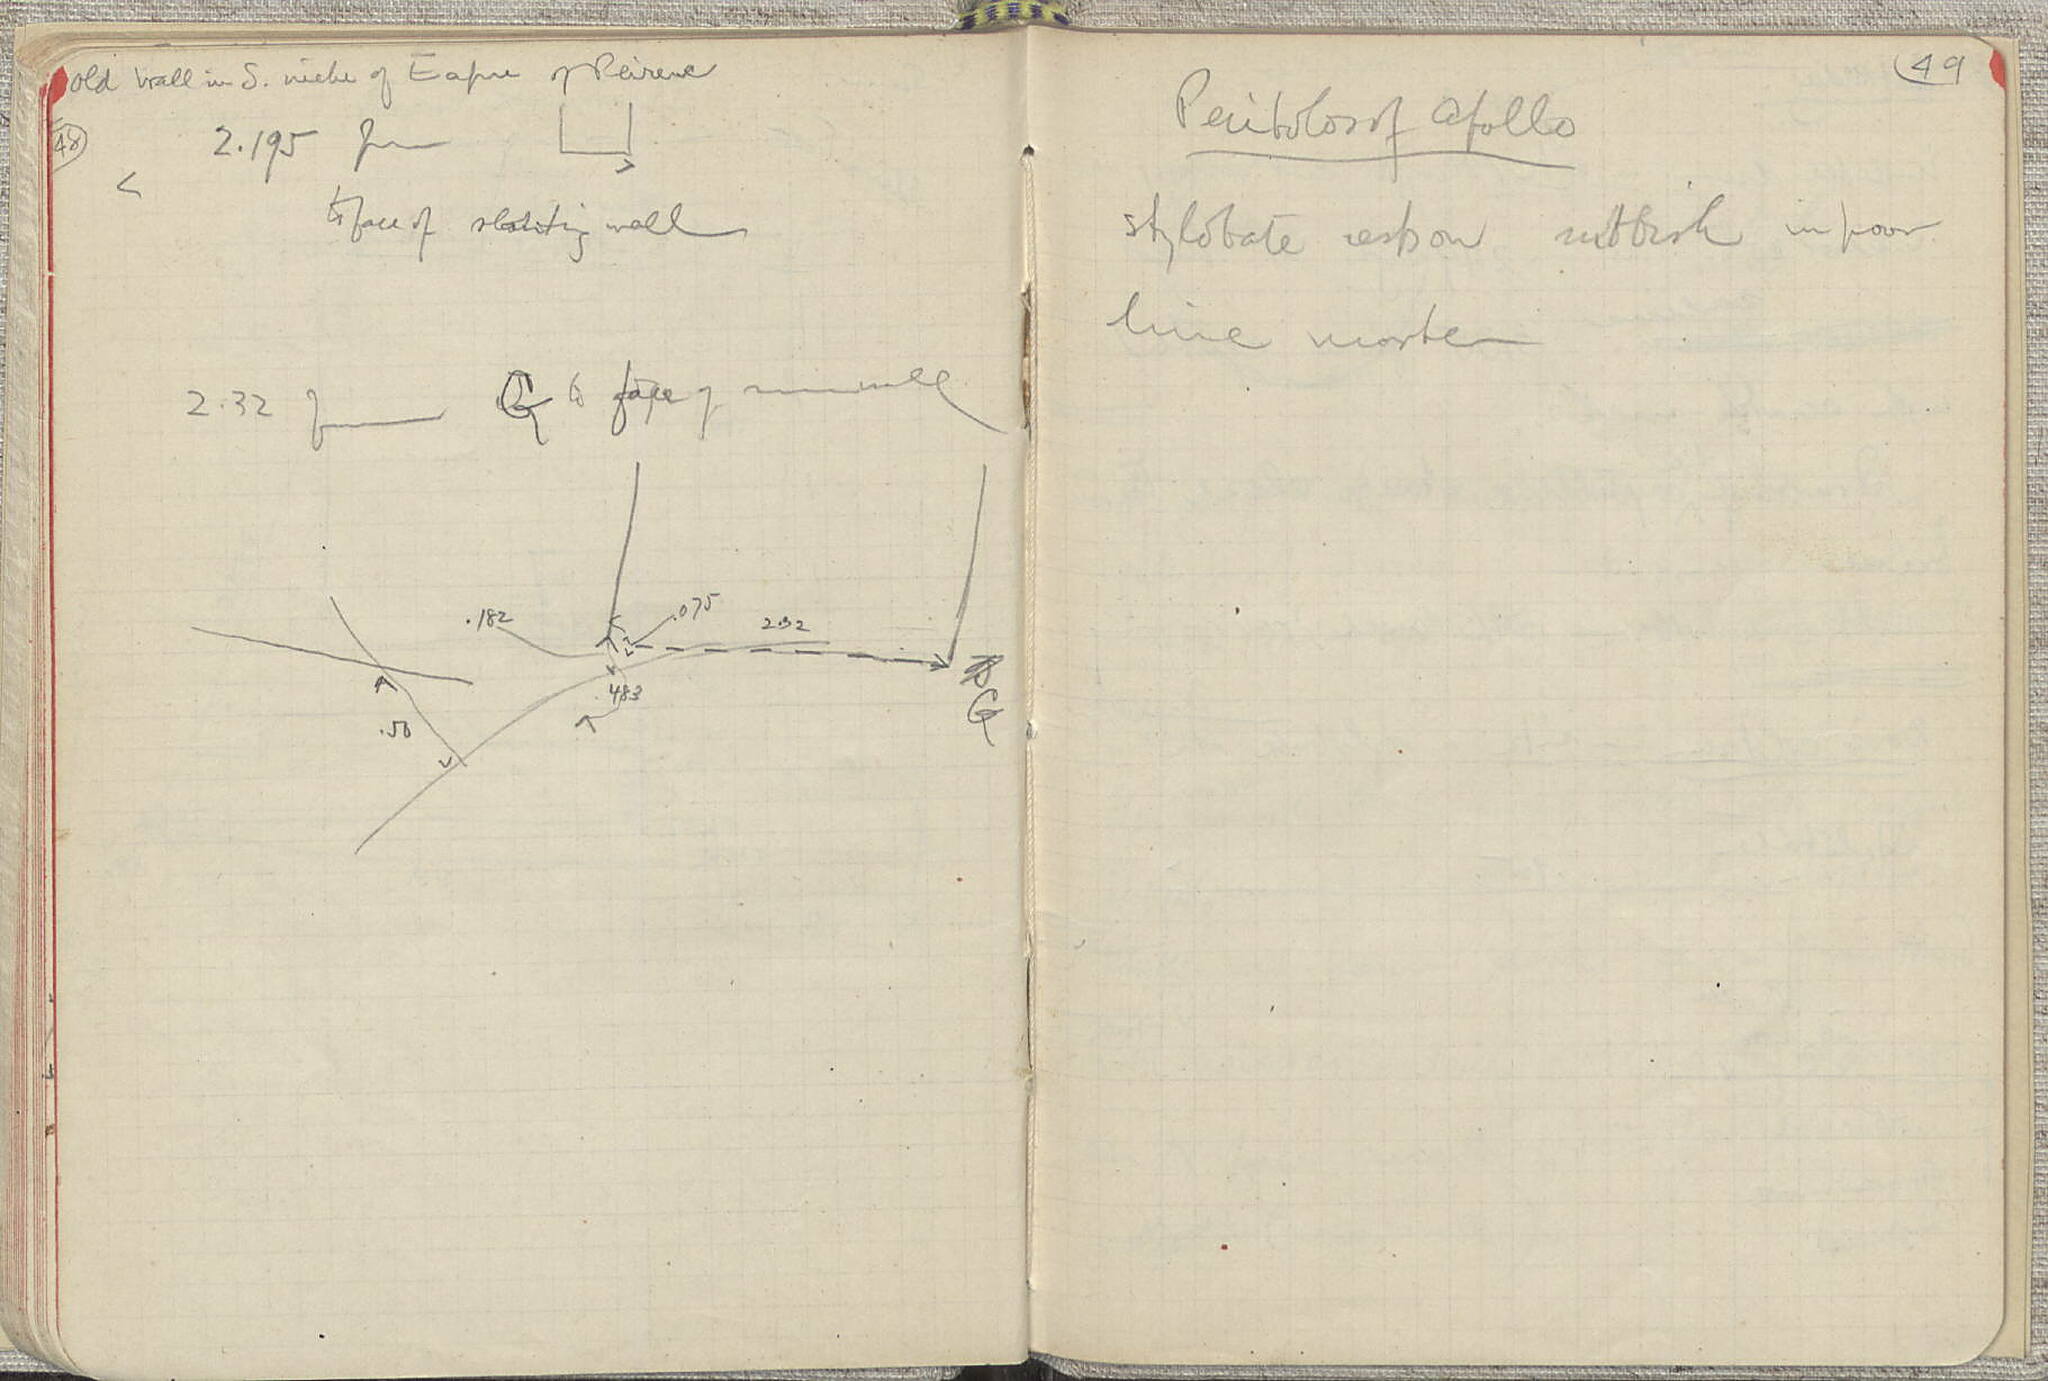 old wall in S. niche of E apse of Peirene
48
2.195 from
to face of slanting wall
2.32 from G to face of wall
.182
.075
2.32
.483
.50
G
49
Peribolos of Apollo
stylobate rests on rubbish in poor
lime mortar